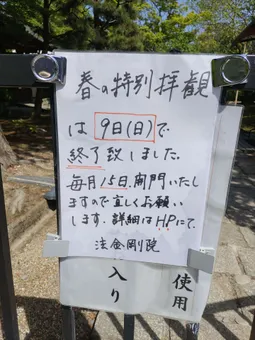 春の特別拝観
は 9日(日)で
終了致しました。
毎月15日、開門いたし
ますので宜しくお願い
します。詳細はHPにて、
法金剛院
使用
入り